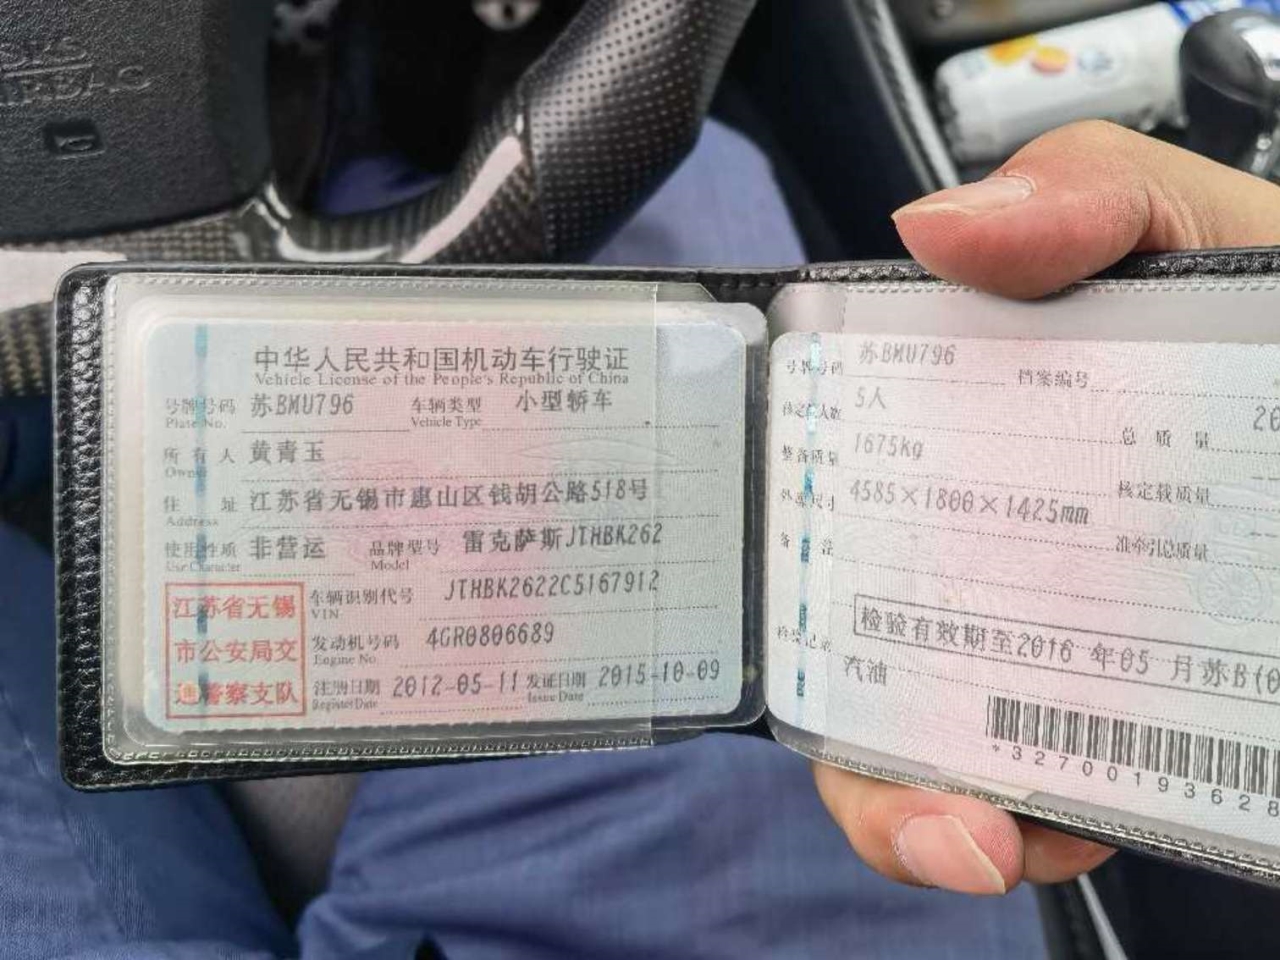 SRS
AIRBAG
中华人民共和国机动车行驶证
Vehicle License of the People's Republic of China
号牌号码 苏BMU796 车辆类型 小型轿车
Plate No. Vehicle Type
所有人 黄青玉
Owner
住址 江苏省无锡市惠山区钱胡公路518号
Address
使用性质 非营运 品牌型号 雷克萨斯JTHBK262
Use Character Model
江苏省无锡
市公安局交
通警察支队
车辆识别代号 JTHBK2622C5167912
VIN
发动机号码 4GR0806689
Engine No.
注册日期 2012-05-11 发证日期 2015-10-09
Register Date Issue Date
号牌号码 苏BMU796 档案编号
核定载人数 5人 总质量 20
整备质量 1675kg 核定载质量
外廓尺寸 4585×1800×1425mm 准牵引总质量
备注
检验记录 检验有效期至2016年05月苏B(0
汽油
*32700193628